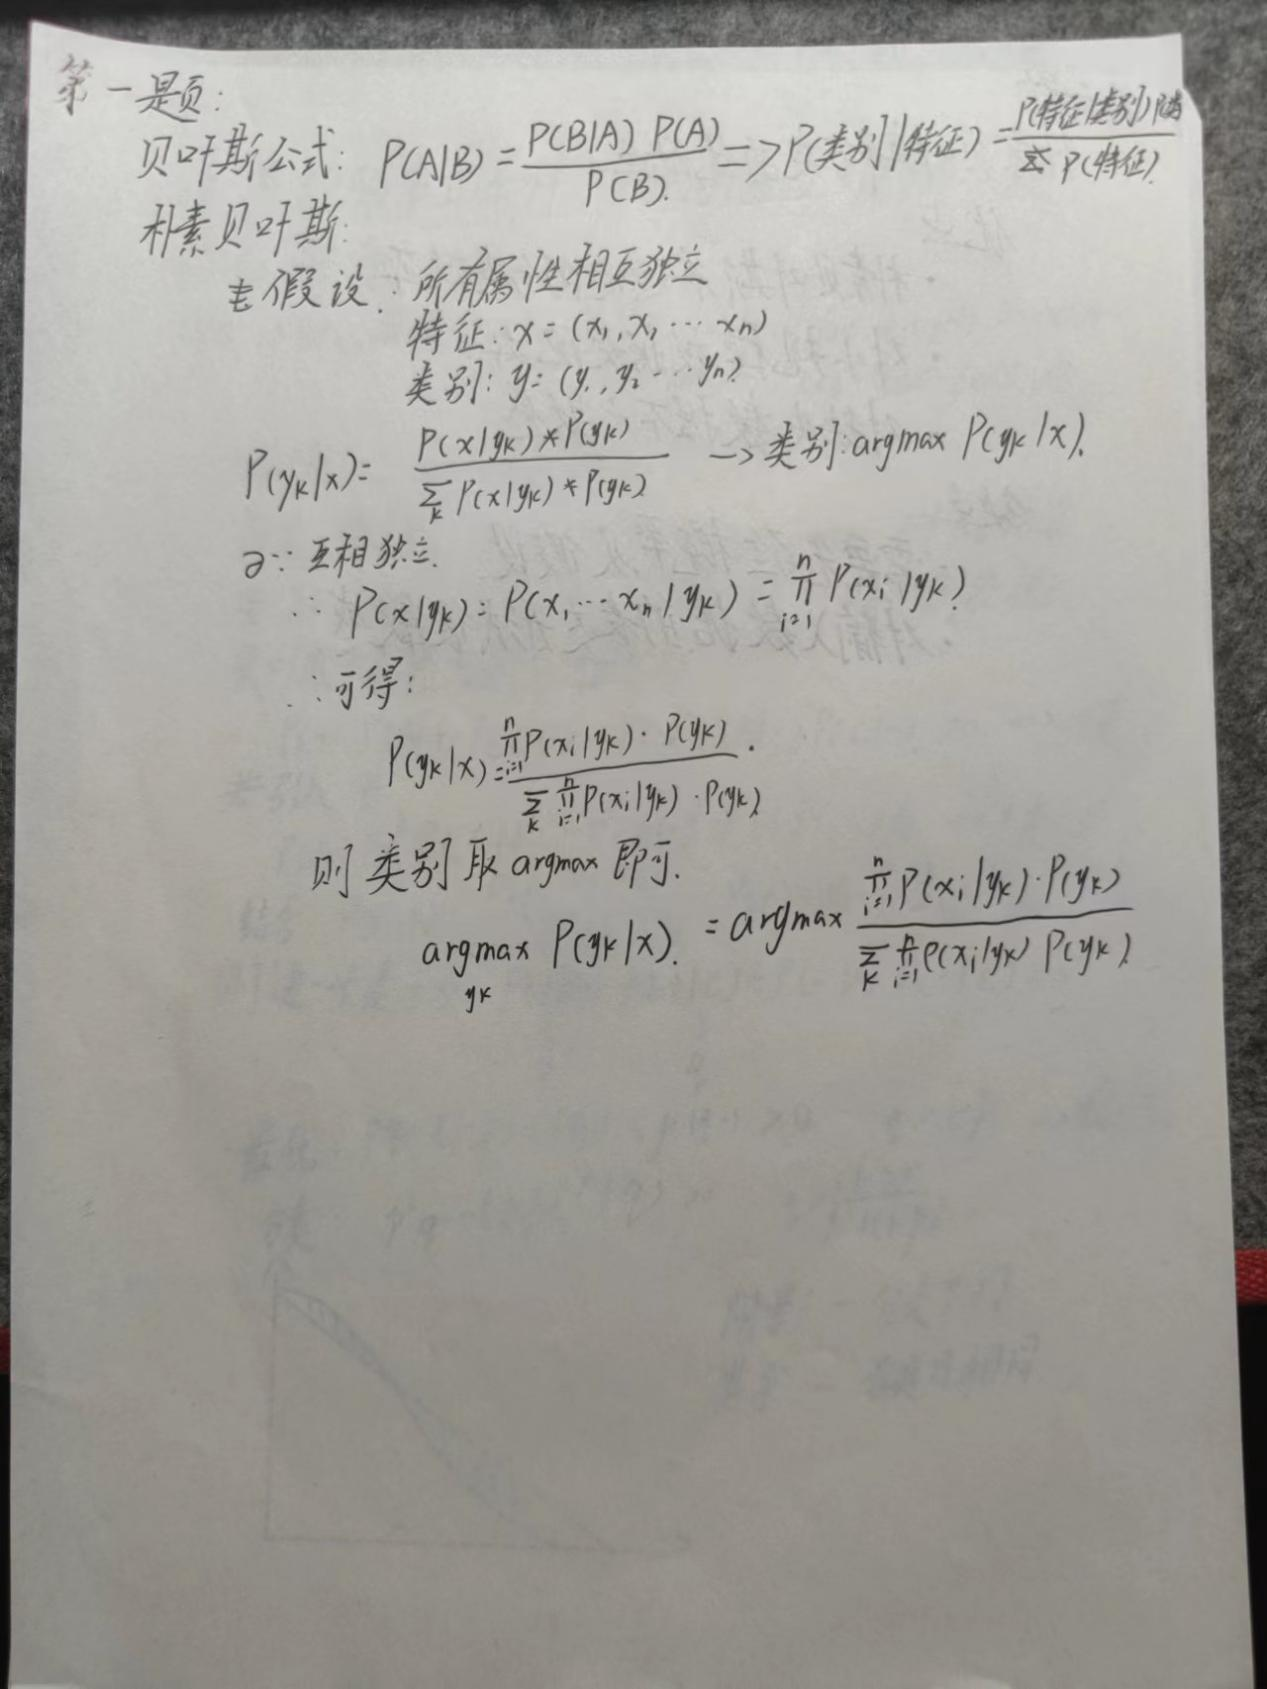 第一题:
贝叶斯公式: P(A|B) = P(B|A) P(A) / P(B). => P(类别|特征) = P(特征|类别) P / P(特征).
朴素贝叶斯:
假设: 所有属性相互独立
特征: x = (x₁, x₁ ⋯ xn)
类别: y = (y₁, y₂ ⋯ yn).
P(yk|x) = P(x|yk) * P(yk) / Σk P(x|yk) * P(yk) -> 类别: argmax P(yk|x).
∵ 互相独立.
∴ P(x|yk) = P(x₁ ⋯ xn | yk) = ∏i=1n P(xi|yk).
∴ 可得:
P(yk|x) = ∏i=1n P(xi|yk) · P(yk) / Σk ∏i=1n P(xi|yk) · P(yk).
则类别取 argmax 即可.
argmax yk P(yk|x). = argmax ∏i=1n P(xi|yk) · P(yk) / Σk ∏i=1n P(xi|yk) P(yk).